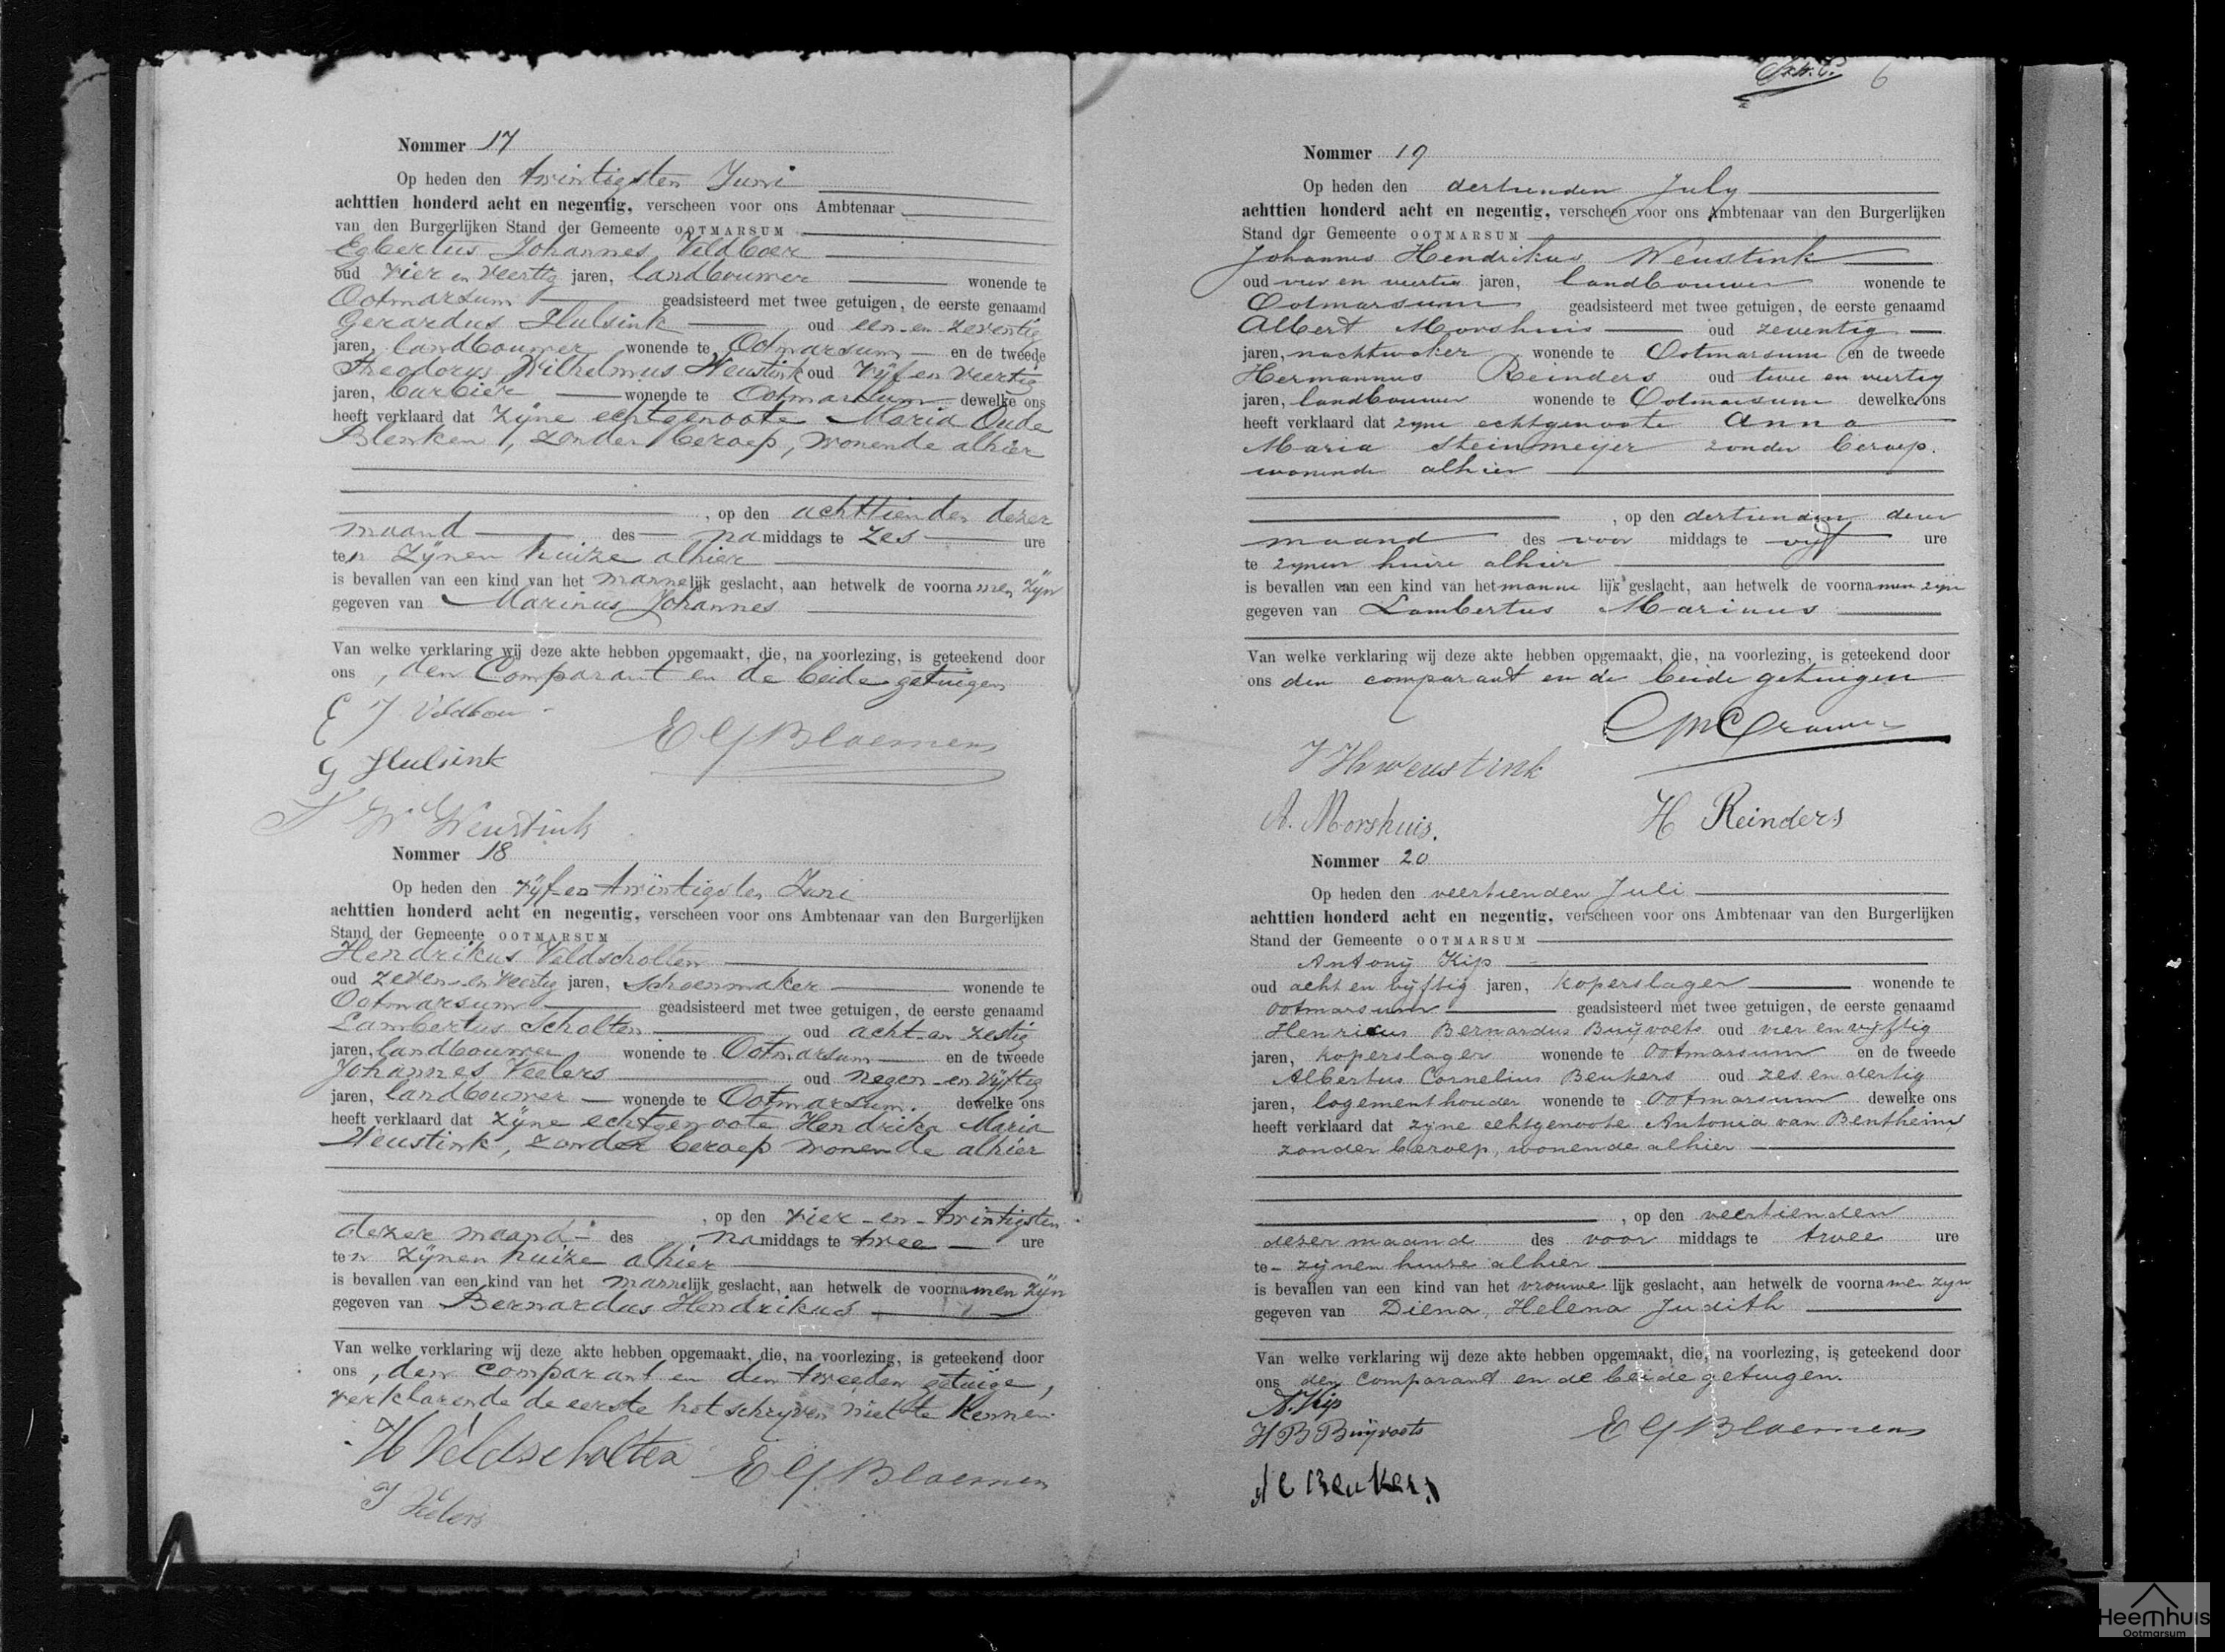 Nommer 17
Op heden den twintigsten Juni
achttien honderd acht en negentig, verscheen voor ons Ambtenaar
van den Burgerlijken Stand der Gemeente OOTMARSUM
Egbertus Johannes Veldboer
oud vier en veertig jaren, landbouwer wonende te
Ootmarsum geadsisteerd met twee getuigen, de eerste genaamd
Gerardus Hulsink oud een-en-zeventig
jaren, landbouwer wonende te Ootmarsum en de tweede
Theodorus Wilhelmus Weustink oud vijf en veertig
jaren, barbier wonende te Ootmarsum dewelke ons
heeft verklaard dat zijne echtgenoote Maria Oude
Blenken, zonder beroep, wonende alhier
, op den achttienden dezer
maand des namiddags te zes ure
ten zijnen huize alhier
is bevallen van een kind van het mannelijk geslacht, aan hetwelk de voornamen zijn
gegeven van Marinus Johannes
Van welke verklaring wij deze akte hebben opgemaakt, die, na voorlezing, is geteekend door
ons , den Comparant en de beide getuigen
E J Veldboer
E G Bloemen
G Hulsink
T W Weustink
Nommer 18
Op heden den vijf en twintigsten Juni
achttien honderd acht en negentig, verscheen voor ons Ambtenaar van den Burgerlijken
Stand der Gemeente OOTMARSUM
Hendrikus Veldscholten
oud zeven-en veertig jaren, schoenmaker wonende te
Ootmarsum geadsisteerd met twee getuigen, de eerste genaamd
Lambertus Scholten oud acht-en zestig
jaren, landbouwer wonende te Ootmarsum en de tweede
Johannes Veelers oud negen-en vijftig
jaren, landbouwer wonende te Ootmarsum. dewelke ons
heeft verklaard dat zijne echtgenoote Hendrika Maria
Weustink, zonder beroep wonende alhier
, op den vier-en-twintigsten
dezer maand des namiddags te twee ure
ten zijnen huize alhier
is bevallen van een kind van het mannelijk geslacht, aan hetwelk de voornamen zijn
gegeven van Bernardus Hendrikus
Van welke verklaring wij deze akte hebben opgemaakt, die, na voorlezing, is geteekend door
ons , den comparant en den tweeden getuige,
verklarende de eerste het schrijven niet te kennen
H Veldscholten E G Bloemen
J Veelers
6
Nommer 19
Op heden den dertienden July
achttien honderd acht en negentig, verscheen voor ons Ambtenaar van den Burgerlijken
Stand der Gemeente OOTMARSUM
Johannes Hendrikus Weustink
oud vier en veertig jaren, landbouwer wonende te
Ootmarsum geadsisteerd met twee getuigen, de eerste genaamd
Albert Morshuis oud zeventig
jaren, nachtwaker wonende te Ootmarsum en de tweede
Hermannus Reinders oud twee en veertig
jaren, landbouwer wonende te Ootmarsum dewelke ons
heeft verklaard dat zijne echtgenoote Anna
Maria Steinmeijer zonder beroep.
wonende alhier
, op den dertienden dezer
maand des voor middags te vijf ure
te zijnen huize alhier
is bevallen van een kind van het manne lijk geslacht, aan hetwelk de voornamen zijn
gegeven van Lambertus Marinus
Van welke verklaring wij deze akte hebben opgemaakt, die, na voorlezing, is geteekend door
ons den comparant en de beide getuigen
J H Weustink
A. Morshuis. H Reinders
Nommer 20
Op heden den veertienden Juli
achttien honderd acht en negentig, verscheen voor ons Ambtenaar van den Burgerlijken
Stand der Gemeente OOTMARSUM
Antony Kip
oud acht en vijftig jaren, koperslager wonende te
Ootmarsum geadsisteerd met twee getuigen, de eerste genaamd
Henricus Bernardus Buijvoets oud vier en vijftig
jaren, koperslager wonende te Ootmarsum en de tweede
Albertus Cornelius Beukers oud zes en dertig
jaren, logementhouder wonende te Ootmarsum dewelke ons
heeft verklaard dat zijne echtgenoote Antonia van Bentheim
zonder beroep, wonende alhier
, op den veertienden
dezer maand des voor middags te twee ure
te zijnen huize alhier
is bevallen van een kind van het vrouwe lijk geslacht, aan hetwelk de voornamen zijn
gegeven van Diena, Helena Judith
Van welke verklaring wij deze akte hebben opgemaakt, die, na voorlezing, is geteekend door
ons den Comparant en de beide getuigen.
A. Kip
H B Buijvoets E G Bloemen
A C Beukers
Heemhuis
Ootmarsum